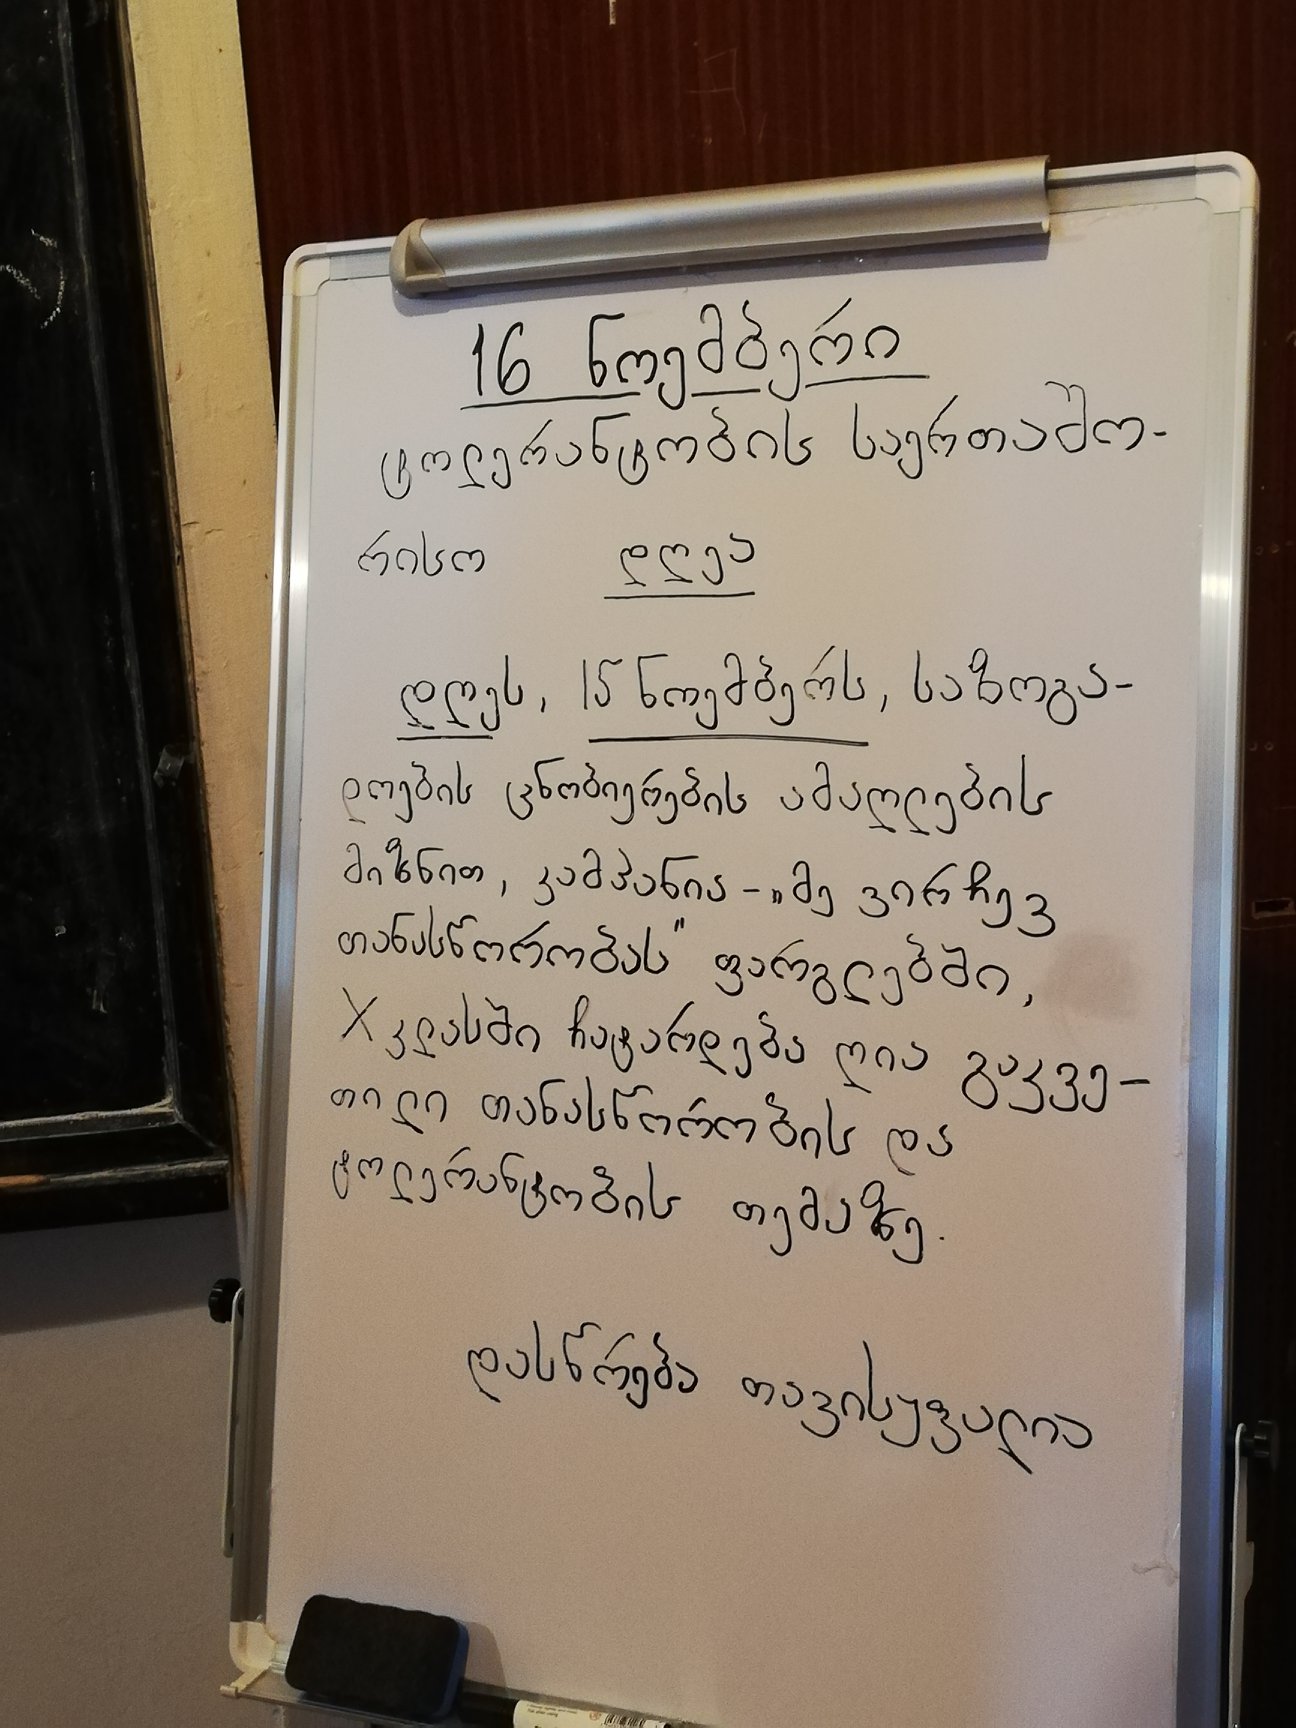 16 ნოემბერი
ტოლერანტობის საერთაშო-
რისო დღეა
დღეს, 15 ნოემბერს, საზოგა-
დოების ცნობიერების ამაღლების
მიზნით, კამპანია - „მე ვირჩევ
თანასწორობას" ფარგლებში,
X კლასში ჩატარდება ღია გაკვე-
თილი თანასწორობის და
ტოლერანტობის თემაზე.
დასწრება თავისუფალია